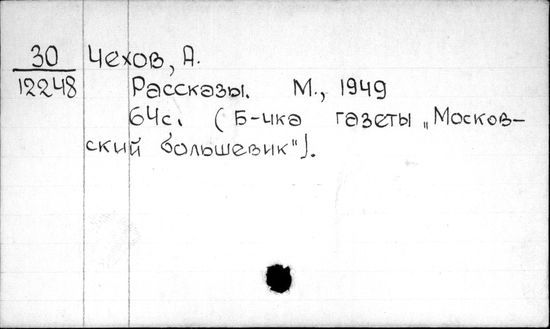 30 Чехов, А.
12248 Рассказы. М., 1949
64с. (Б-чка газеты „Москов-
ский большевик").